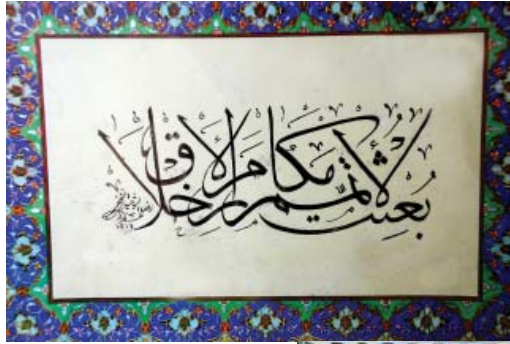 بُعِثتُ لأُتمِّمَ مکارم الاخلاق